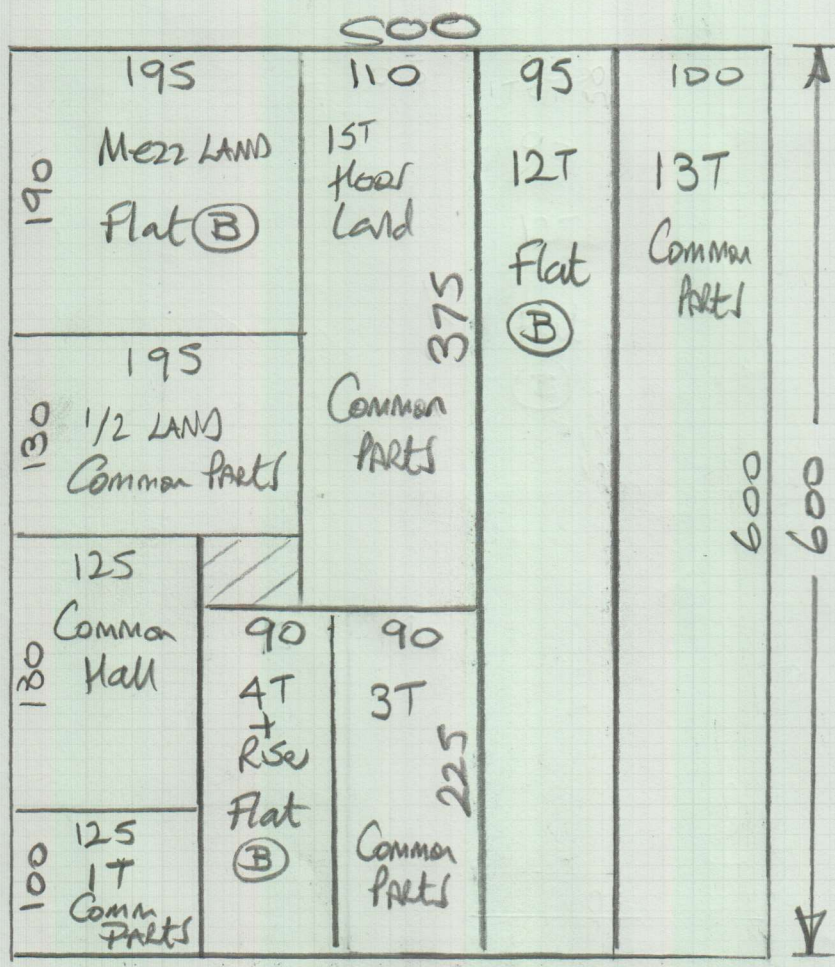 500
195
190
Mezz LAND
Flat B
110
1ST
floor
Land
375
Common
PARTS
95
12T
Flat
B
100
13T
Common
PARTS
600
600
195
130
1/2 LAND
Common PARTS
125
130
Common
Hall
125
100
1T
Comm
PARTS
90
4T
+
Riser
Flat
B
90
3T
225
Common
PARTS